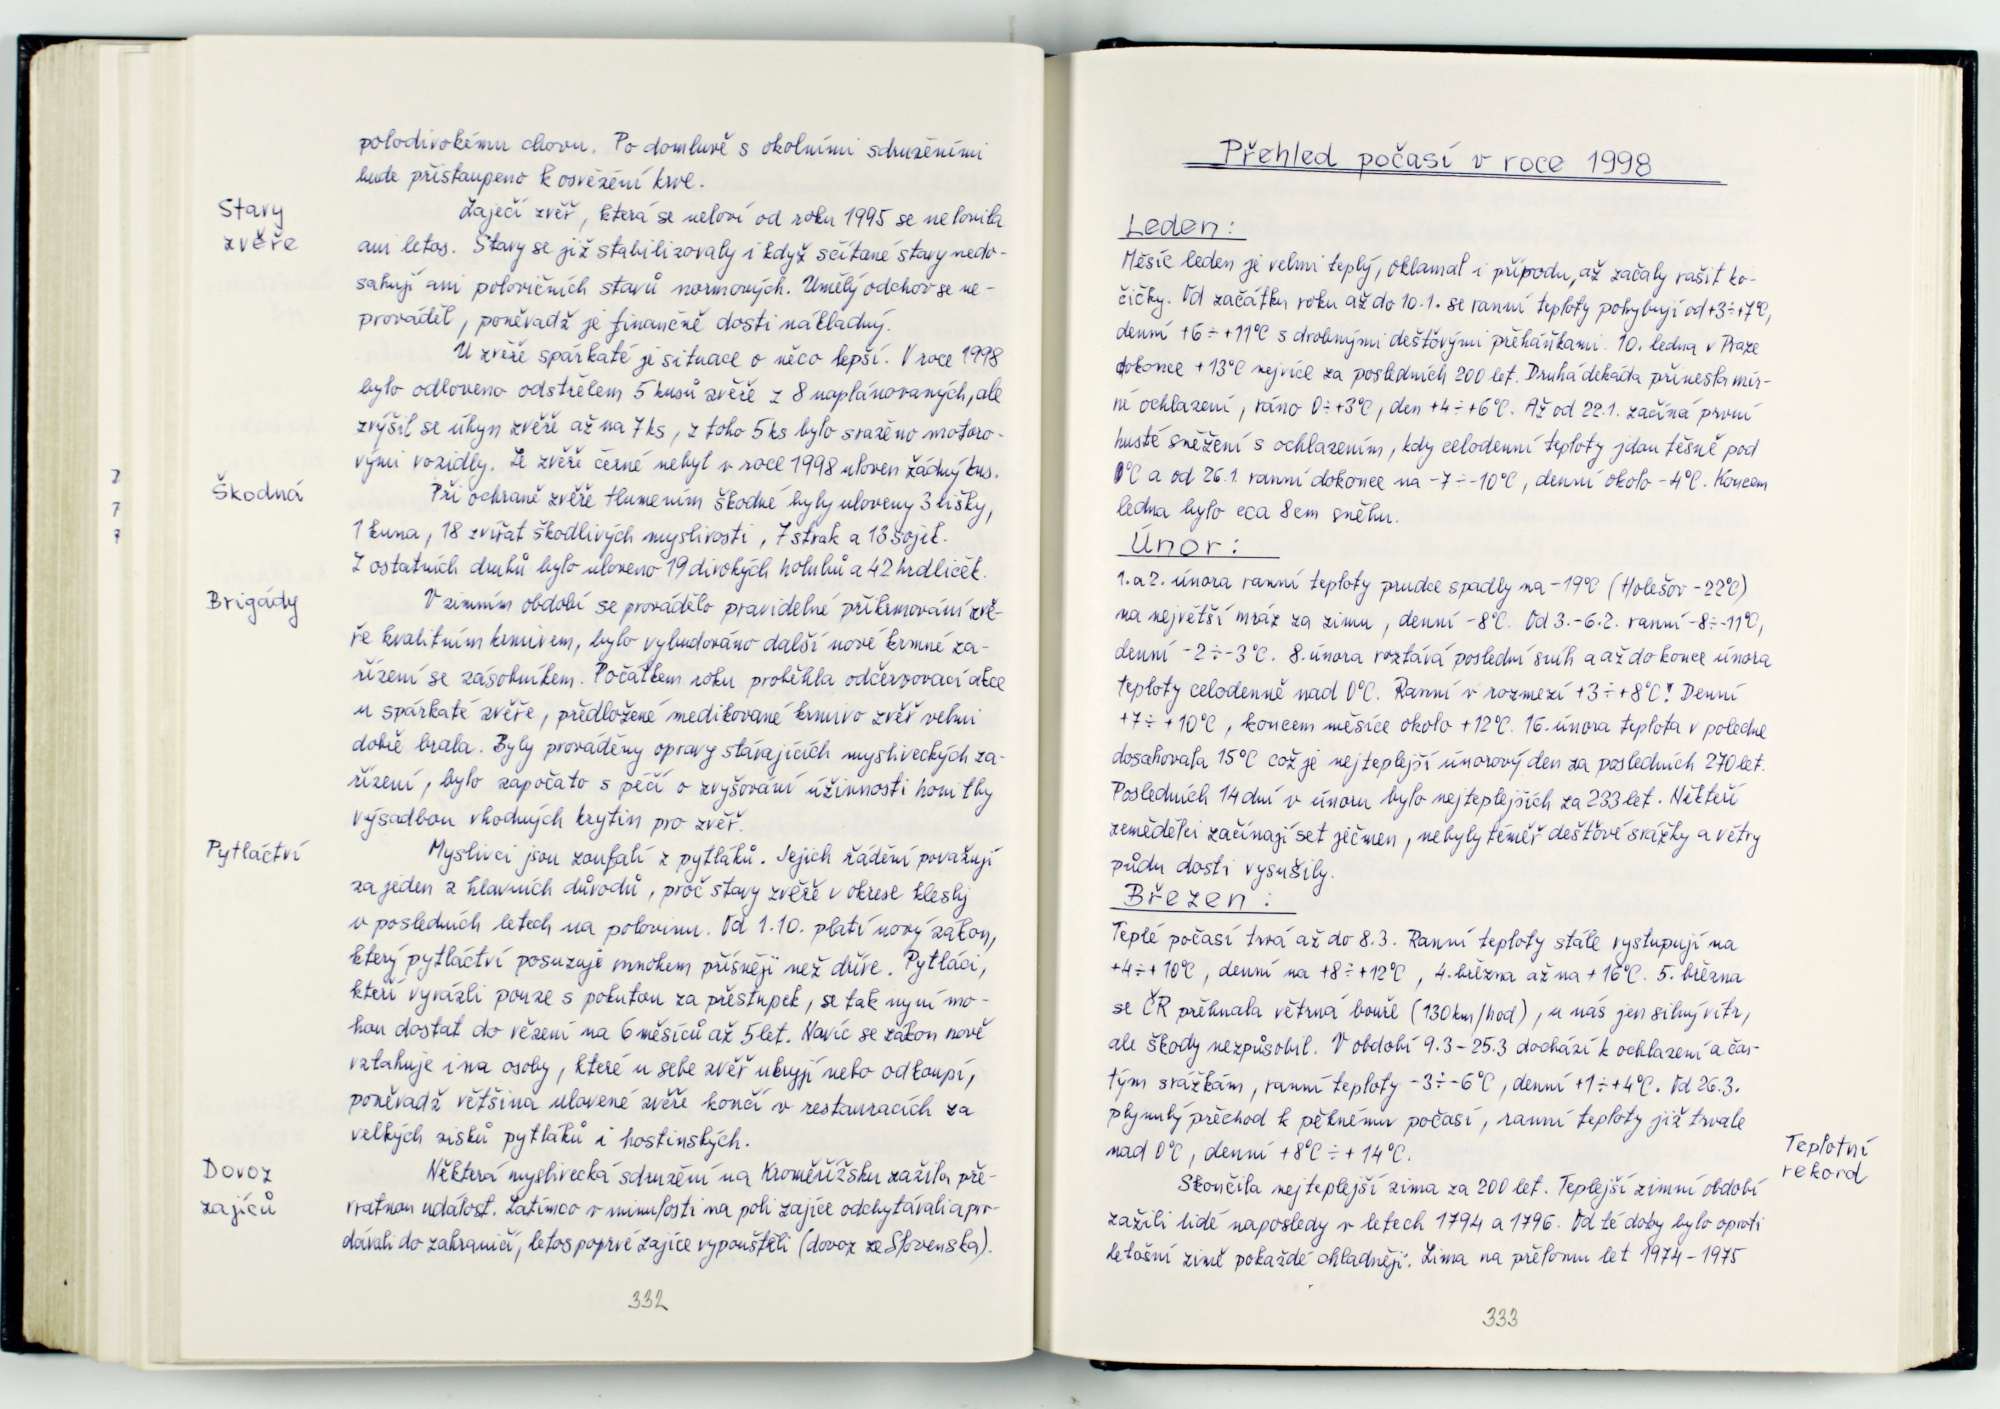 polodivokému chovu. Po domluvě s okolními sdruženími
bude přistoupeno k osvěžení krve.
Stavy
zvěře
Zaječí zvěř, která se neloví od roku 1995 se nelovila
ani letos. Stavy se již stabilizovaly i když sčítané stavy nedo-
sahují ani polovičních stavů normových. Umělý odchov se ne-
prováděl, poněvadž je finančně dosti nákladný.
U zvěře spárkaté je situace o něco lepší. V roce 1998
bylo odloveno odstřelem 5 kusů zvěře z 8 naplánovaných, ale
zvýšil se úhyn zvěře až na 7 ks, z toho 5 ks bylo sraženo motoro-
vými vozidly. Ze zvěře černé nebyl v roce 1998 uloven žádný kus.
Škodná
Při ochraně zvěře tlumením škodné byly uloveny 3 lišky,
1 kuna, 18 zvířat škodlivých myslivosti, 7 strak a 13 sojek.
Z ostatních druhů bylo uloveno 19 divokých holubů a 42 hrdliček.
Brigády
V zimním období se provádělo pravidelné přikrmování zvě-
ře kvalitním krmivem, bylo vybudováno další nové krmné za-
řízení se zásobníkem. Počátkem roku proběhla odčervovací akce
u spárkaté zvěře, předložené medikované krmivo zvěř velmi
dobře brala. Byly prováděny opravy stávajících mysliveckých za-
řízení, bylo započato s péčí o zvyšování úživnosti honitby
výsadbou vhodných krytin pro zvěř.
Pytláctví
Myslivci jsou zoufalí z pytláků. Jejich řádění považují
za jeden z hlavních důvodů, proč stavy zvěře v okrese klesly
v posledních letech na polovinu. Od 1.10. platí nový zákon,
který pytláctví posuzuje mnohem přísněji než dříve. Pytláci,
kteří vyvázli pouze s pokutou za přestupek, se tak nyní mo-
hou dostat do vězení na 6 měsíců až 5 let. Navíc se zákon nově
vztahuje i na osoby, které u sebe zvěř ukryjí nebo odkoupí,
poněvadž většina ulovené zvěře končí v restauracích za
velkých zisků pytláků i hostinských.
Dovoz
zajíců
Některá myslivecká sdružení na Kroměřížsku zažila pře-
vratnou událost. Zatímco v minulosti na poli zajíce odchytávali a pro-
dávali do zahraničí, letos poprvé zajíce vypouštěli (dovoz ze Slovenska).
332
Přehled počasí v roce 1998
Leden:
Měsíc leden je velmi teplý, oklamal i přírodu, až začaly rašit ko-
čičky. Od začátku roku až do 10.1. se ranní teploty pohybují od +3÷+7°C,
denní +6÷+11°C s drobnými dešťovými přeháňkami. 10. ledna v Praze
dokonce +13°C nejvíce za posledních 200 let. Druhá dekáda přinesla mír-
né ochlazení, ráno 0÷+3°C, den +4÷+6°C. Až od 22.1. začíná první
husté sněžení s ochlazením, kdy celodenní teploty jdou těsně pod
0°C a od 26.1. ranní dokonce na -7÷-10°C, denní okolo -4°C. Koncem
ledna bylo cca 8cm sněhu.
Únor:
1. a 2. února ranní teploty prudce spadly na -19°C (Holešov -22°C)
na největší mráz za zimu, denní -8°C. Od 3.-6.2. ranní -8÷-11°C,
denní -2÷-3°C. 8. února roztává poslední sníh a až do konce února
teploty celodenně nad 0°C. Ranní v rozmezí +3÷+8°C! Denní
+7÷+10°C, koncem měsíce okolo +12°C. 16. února teplota v poledne
dosahovala 15°C což je nejteplejší únorový den za posledních 270 let.
Posledních 14 dní v únoru bylo nejteplejších za 233 let. Někteří
zemědělci začínají set ječmen, nebyly téměř dešťové srážky a větry
půdu dosti vysušily.
Březen:
Teplé počasí trvá až do 8.3. Ranní teploty stále vystupují na
+4÷+10°C, denní na +8÷+12°C, 4. března až na +16°C. 5. března
se ČR přehnala větrná bouře (130km/hod), u nás jen silný vítr,
ale škody nezpůsobil. V období 9.3-25.3 dochází k ochlazení a čas-
tým srážkám, ranní teploty -3÷-6°C, denní +1÷+4°C. Od 26.3.
plynulý přechod k pěknému počasí, ranní teploty již trvale
nad 0°C, denní +8°C÷+14°C.
Teplotní
rekord
Skončila nejteplejší zima za 200 let. Teplejší zimní období
zažili lidé naposledy v letech 1794 a 1796. Od té doby bylo oproti
letošní zimě pokaždé chladněji. Zima na přelomu let 1974-1975
333